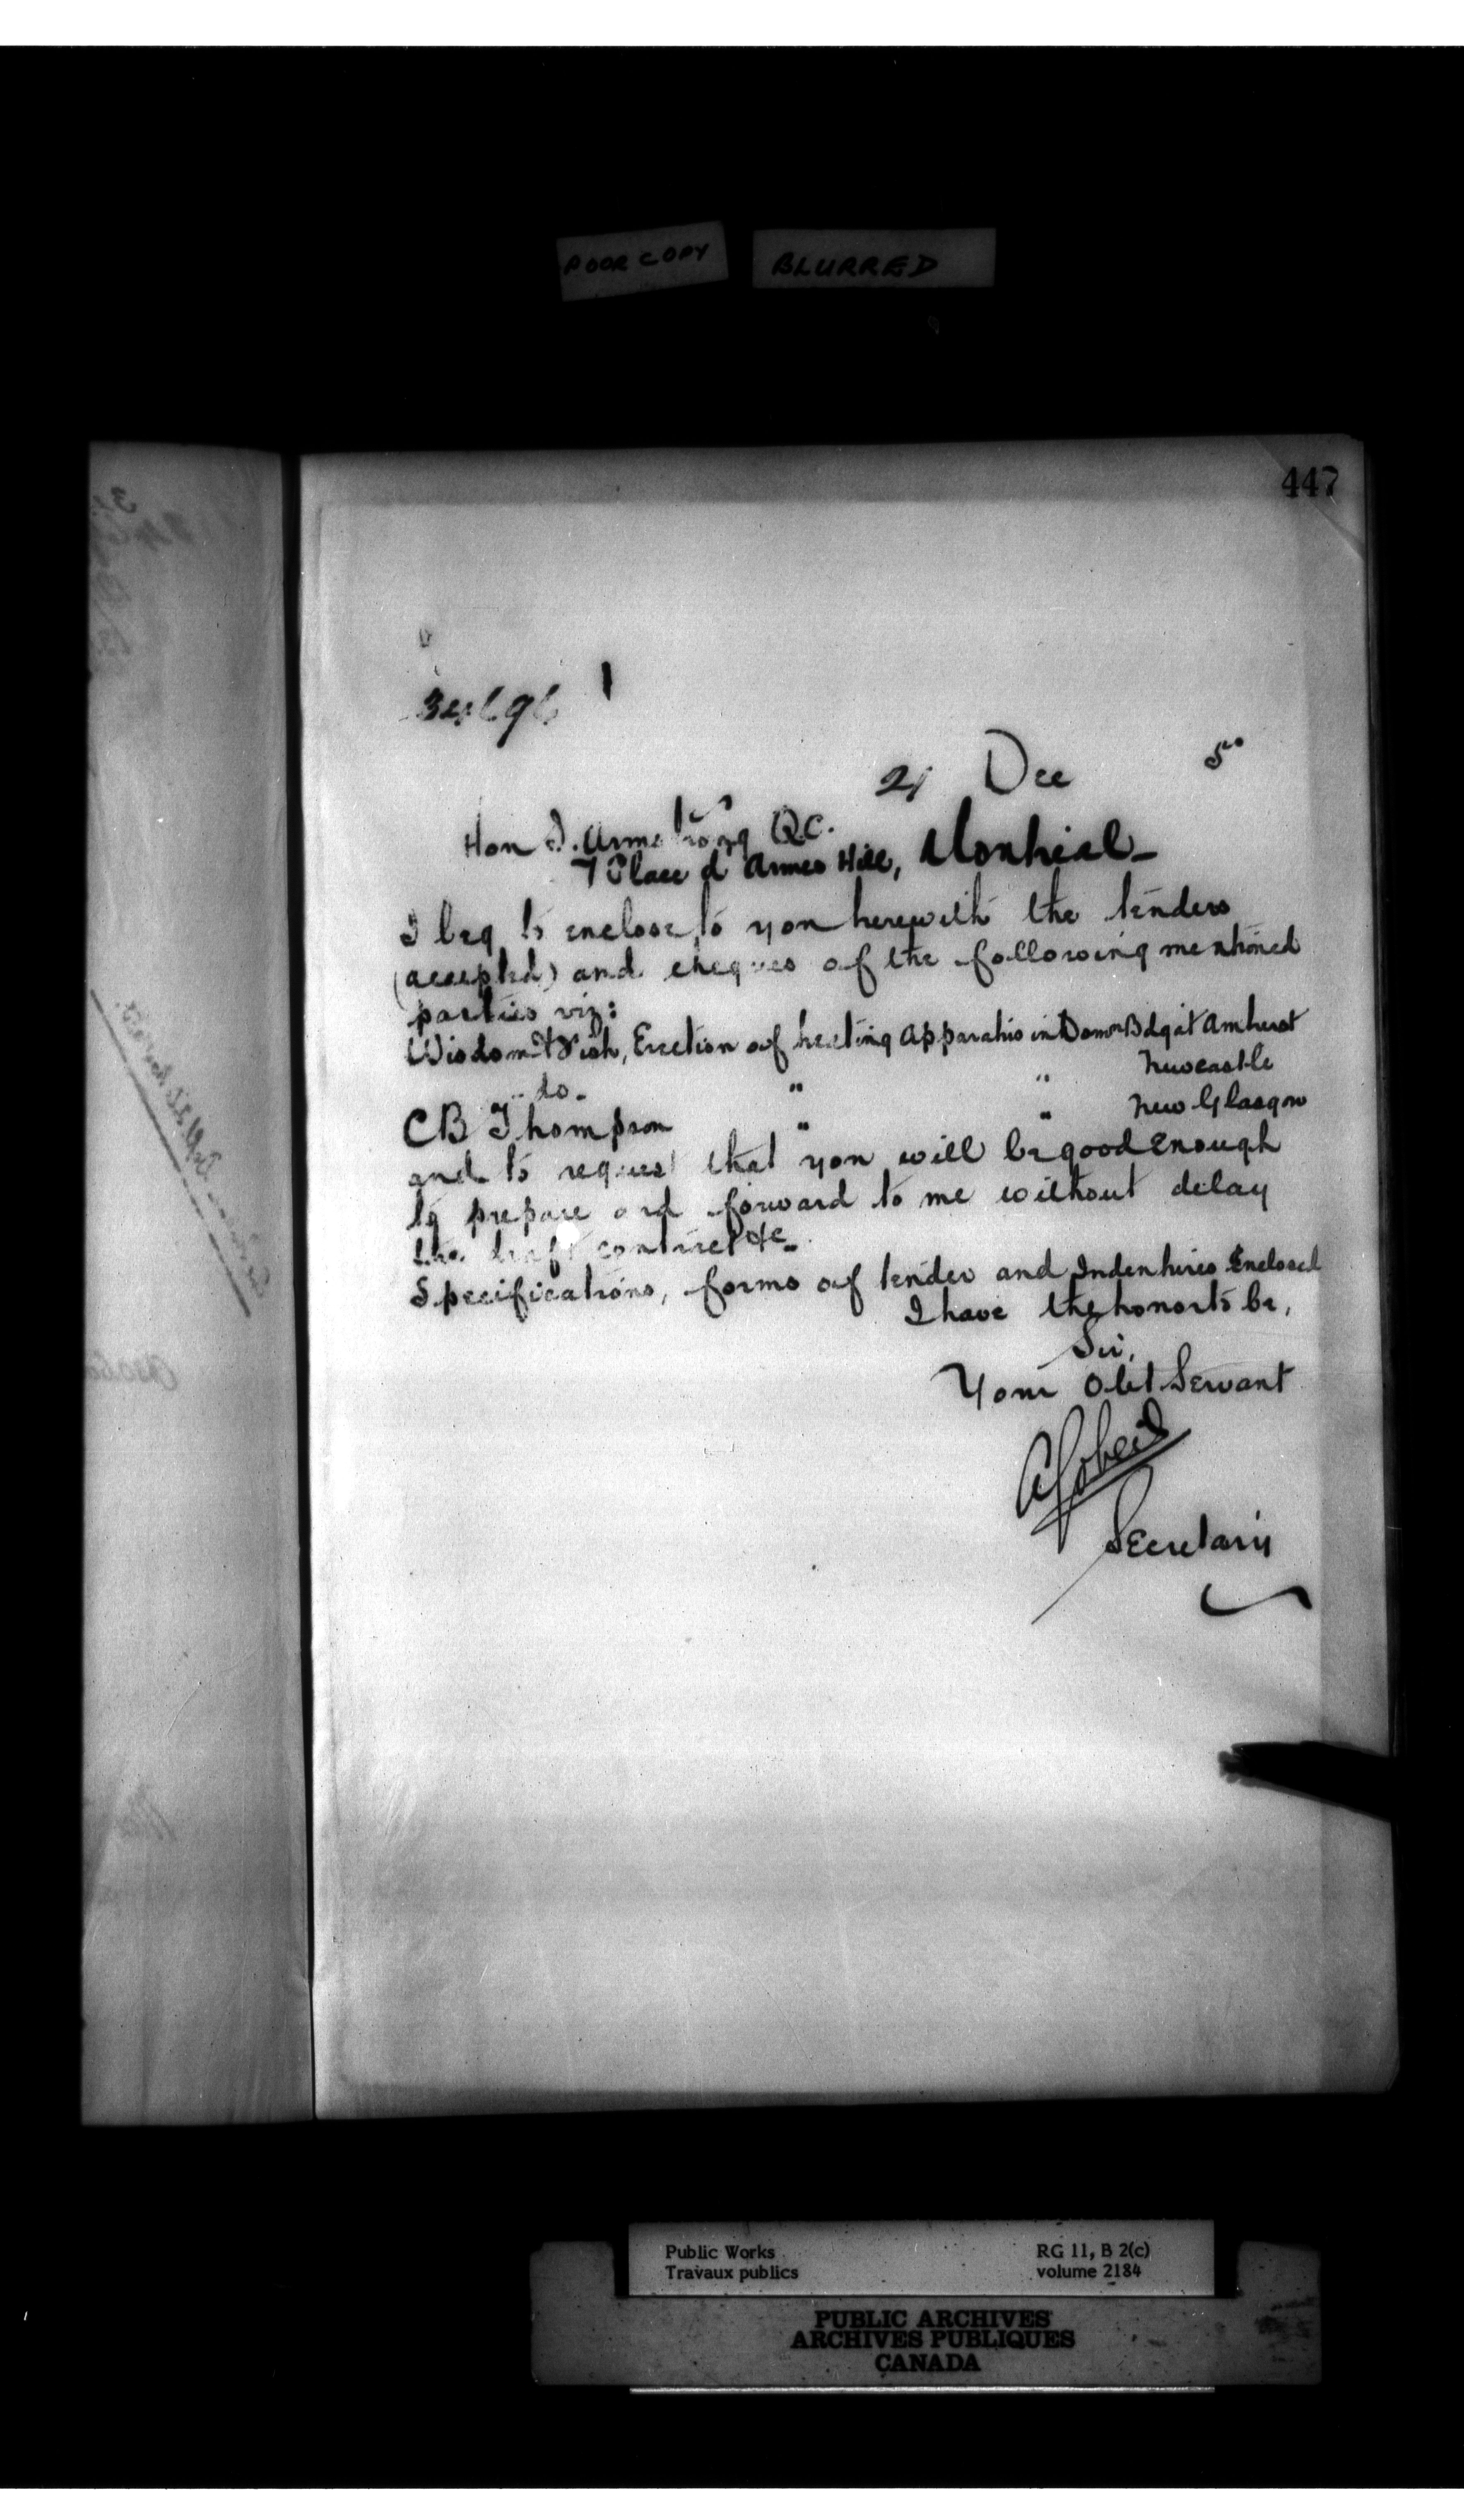 POOR COPY BLURRED
447
21 Dec
Hon J. Armstrong Q.C.
7 Place d'Armes Hill, Montreal
I beg to enclose to you herewith the tenders
(accepted) and cheques of the following mentioned
parties viz:
Wisdom & Fish, Erection of heating Apparatus in Domn Bdg at Amherst
do. " " Newcastle
C B Thompson " " New Glasgow
and to request that you will be good enough
to prepare and forward to me without delay
the draft contract &c.
Specifications, forms of tender and Indentures Enclosed
I have the honor to be,
Sir,
Your Obt Servant
A Gobeil
Secretary
Public Works RG 11, B 2(c)
Travaux publics volume 2184
PUBLIC ARCHIVES
ARCHIVES PUBLIQUES
CANADA